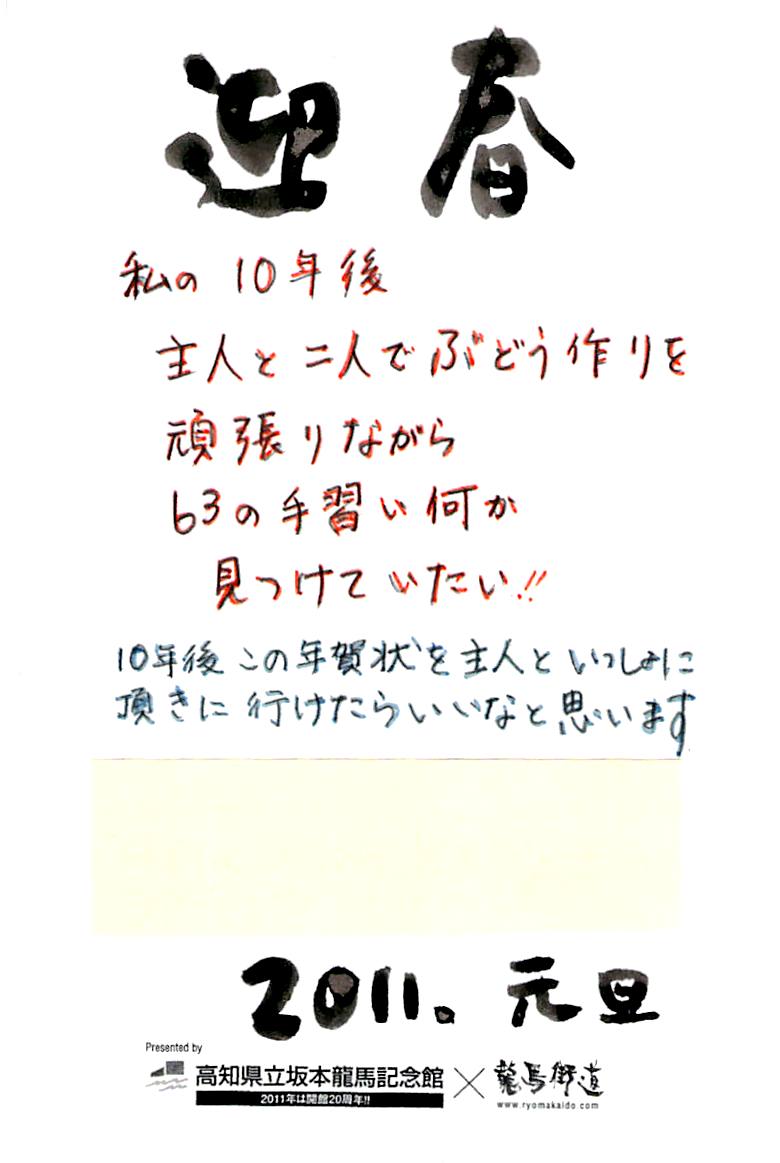 迎春
私の10年後
主人と二人でぶどう作りを
頑張りながら
63の手習い何か
見つけていたい!!
10年後この年賀状を主人といっしょに
頂きに行けたらいいなと思います
2011。元旦
Presented by
高知県立坂本龍馬記念館 × 龍馬街道
2011年は開館20周年!!
www.ryomakaido.com